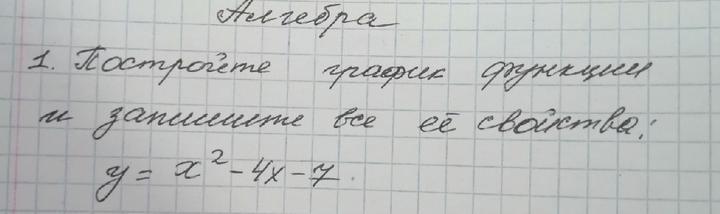 Алгебра
1. Постройте график функции
и запишите все её свойства:
y = x² - 4x - 7.